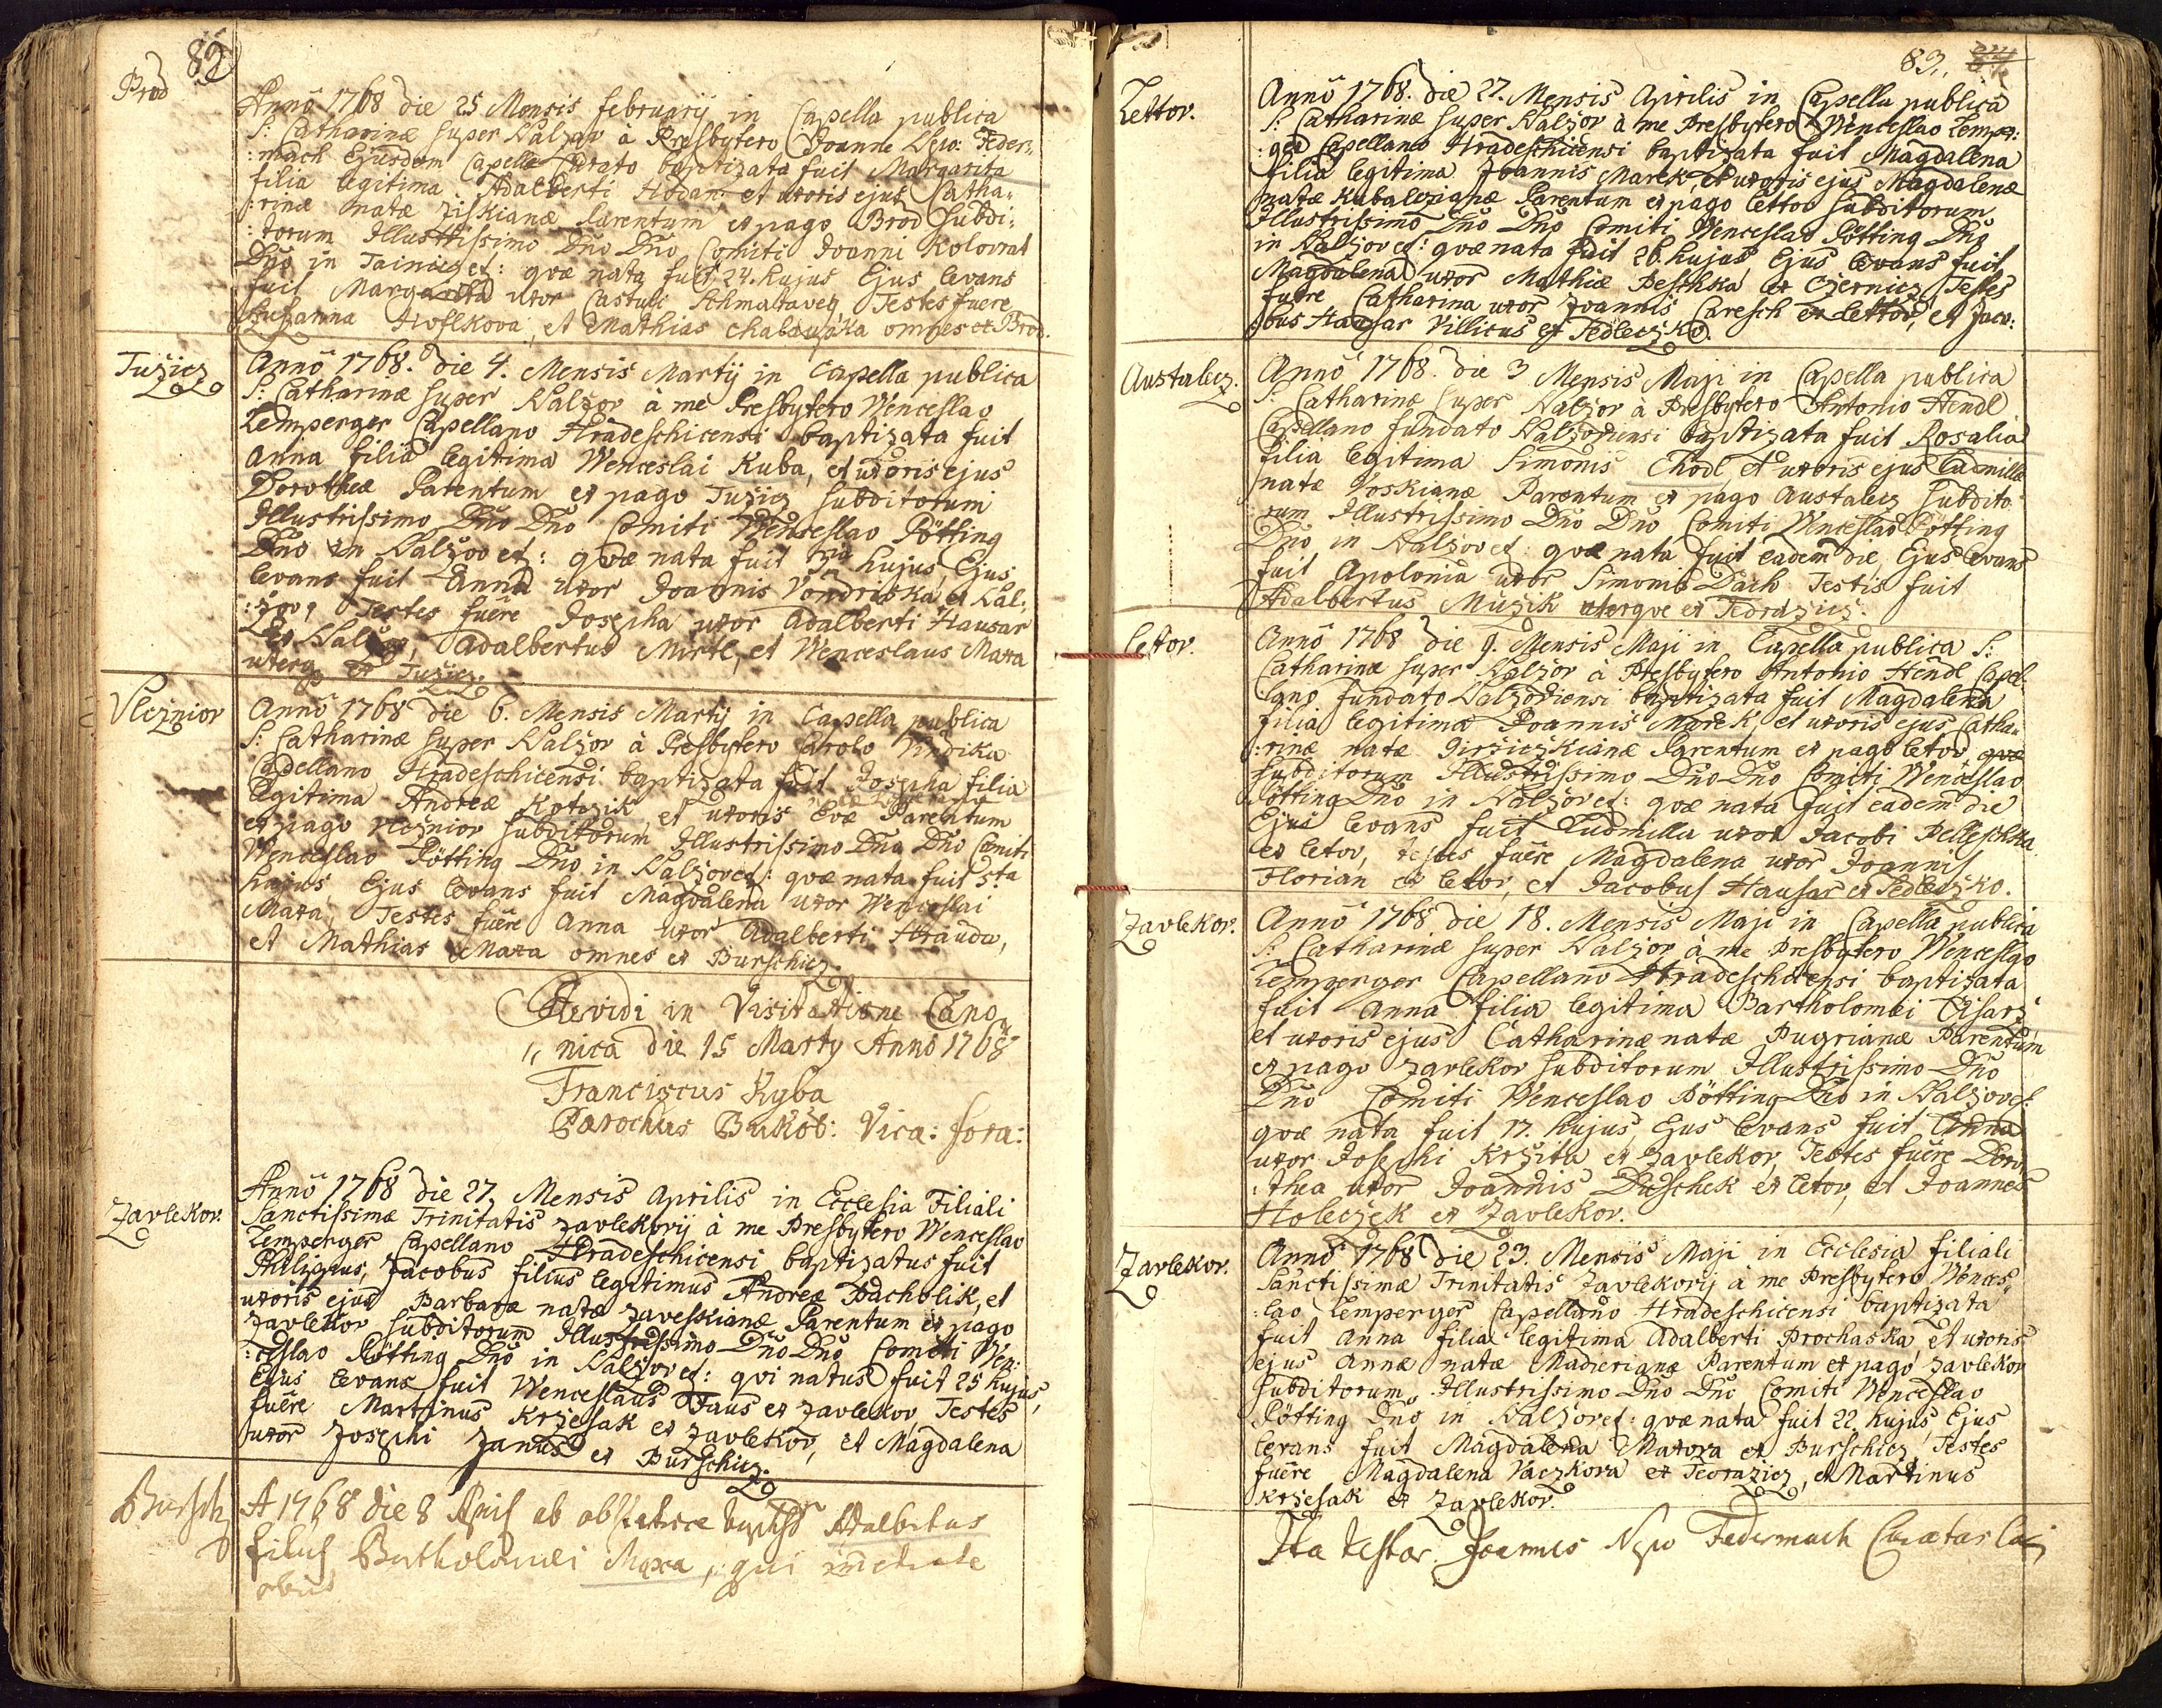 82
Brod
Anno 1768 die 25 Mensis februarij in Capella publica
S: Catharinæ super Nalzov à Presbytero Joanne Nepo: Feder:
:mach Ejusdem Capellæ Curato baptizata fuit Margarita
filia legitima Adalberti Hodan et uxoris ejus Catha:
:rinæ natæ Ziskianæ Parentum ex pago Brod subdi:
:torum Illustrissimo Dno Dno Comiti Joanni Kolovrat
Dno in Tainicz et: quæ nata fuit 24. hujus Ejus levans
fuit Margarita uxor Castuli Schmatavey, Testes fuere
Susanna et Mathias Chalaupka omnes ex Brod.
Tužicz
Anno 1768. die 4. Mensis Martij in Capella publica
S: Catharinæ super Nalzov à me Presbytero Wenceslao
Lemperger Capellano Hradeschicensi baptizata fuit
Anna filia legitima Wenceslai Kuba, et uxoris ejus
Dorotheæ Parentum ex pago Tužicz subditorum
Illustrissimo Dno Dno Comiti Wenceslao Pötting
Dno in Nalzov et: quæ nata fuit hujus, Ejus
levans fuit Anna uxor Joannis Vondriska ex Nal:
:zov, Testes fuêre Josepha uxor Adalberti Hausar
ex Nalzov, Adalbertus Mirtl, et Wenceslaus Maxa
uterq; ex Tužicz.
Vlcznior
Anno 1768 die 6. Mensis Martij in Capella publica
S: Catharinæ super Nalzov à Presbytero Carolo Vindika
Capellano Hradeschicensi baptizata fuit Josepha filia
legitima Andreæ Kotozik, et uxoris Evæ Parentum
ex pago Vlcznior subditorum Illustrissimo Dno Dno Comiti
Wenceslao Pötting Dno in Nalzov et: quæ nata fuit 5ta
hujus, Ejus levans fuit Magdalena uxor Wenceslai
Maxa, Testes fuêre Anna uxor Adalberti Strauda,
et Mathias Maxa omnes ex Burschicz.
Revidi in Visitatione Cano,,
,, nica die 15 Marty Anno 1768
Franciscus Ryba
Parochus Bukob: Vica: fora:
Zavlekov.
Anno 1768 die 27. Mensis Aprilis in Ecclesia Filiali
Sanctissimæ Trinitatis Zavlekovij à me Presbytero Wenceslao
Lemperger Capellano Hradeschicensi baptizatus fuit
Philippus, Jacobus filius legitimus Andreæ Pacholik, et
uxoris ejus Barbaræ natæ Zaveskianæ Parentum ex pago
Zavlekov subditorum Illustrissimo Dno Dno Comiti Wen:
:ceslao Pötting Dno in Nalzov et: qvi natus fuit 25 hujus,
Ejus levans fuit Wenceslaus Haus ex Zavlekov, Testes
fuêre Martinus Krzesak ex Zavlekov, et Magdalena
uxor Josephi Janus ex Burschicz.
Bursch
A 1768 die 8 Apris ab obstetrice baptisd Adalbertus
filius Bartholomæi Maxa, qui
obiit
83.
Lettov.
Anno 1768. die 27. Mensis Aprilis in Capella publica
S: Catharinæ super Nalzov à me Presbytero Wenceslao Lemper:
:ger Capellano Hradeschicensi baptizata fuit Magdalena
filia legitima Joannis Marek, et uxoris ejus Magdalenæ
natæ Parentum ex pago Lettov subditorum
Illustrissimo Dno Dno Comiti Wenceslao Pötting Dno
in Nalzov et: quæ nata fuit 26. hujus Ejus levans fuit
Magdalena uxor Mathiæ Peschka ex Czernicz, Testes
fuêre Catharina uxor Joannis Caresch ex Lettov, et Jaco:
:bus Hausar Villicus ex Sedleczko.
Austalecz.
Anno 1768. die 3 Mensis Maji in Capella publica
S: Catharinæ super Nalzov à Presbytero Antonio Hendl
Capellano fundato Nalzoviensi baptizata fuit Rosalia
filia legitima Simonis Chodl, et uxoris ejus Ludmillæ
natæ Voskianæ Parentum ex pago Austalecz subdito:
:rum Illustrissimo Dno Dno Comiti Wenceslao Pötting
Dno in Nalzov et: quæ nata fuit eadem die, Ejus levans
fuit Apolonia uxor Simonis Dach Testis fuit
Adalbertus Muzik uterque ex Tedrazicz.
Letov.
Anno 1768 die 9. Mensis Maji in Capella publica S:
Catharinæ super Nalzov à Presbytero Antonio Hendl Capel:
lano fundato Nalzoviensi baptizata fuit Magdalena
filia legitima Joannis Marek, et uxoris ejus Catha:
:rinæ natæ Jirziczkianæ Parentum ex pago Letov quæ
subditorum Illustrissimo Dno Dno Comiti Wenceslao
Pötting Dno in Nalzov et: quæ nata fuit eadem die
Ejus levans fuit Ludmilla uxor Jacobi Pelleschka
ex Letov, Testes fuêre Magdalena uxor Joannis
Florian ex Letov, et Jacobus Hausar ex Sedleczko.
Zavlekov.
Anno 1768 die 18. Mensis Maji in Capella publica
S: Catharinæ super Nalzov à me Presbytero Wenceslao
Lemperger Capellano Hradeschicensi baptizata
fuit Anna filia legitima Bartholomei Cisarz
et uxoris ejus Catharinæ natæ Pugrianæ Parentum
ex pago Zavlekov subditorum Illustrissimo Dno
Dno Comiti Wenceslao Pötting Dno in Nalzov et:
quæ nata fuit 17. hujus, Ejus levans fuit Anna
uxor Josephi Krzita ex Zavlekov, Testes fuêre Doro:
:thea uxor Joannis Duschek ex Letov, et Joannes
Holeczek ex Zavlekov.
Zavlekov.
Anno 1768 die 23. Mensis Maji in Ecclesia filiali
Sanctissimæ Trinitatis Zavlekovij à me Presbytero Wences:
:lao Lemperger Capellano Hradeschicensi baptizata
fuit Anna filia legitima Adalberti Prochaska, et uxoris
ejus Annæ natæ Madrerianæ Parentum ex pago Zavlekov
subditorum Illustrissimo Dno Dno Comiti Wenceslao
Pötting Dno in Nalzov et: quæ nata fuit 22 hujus, Ejus
levans fuit Magdalena Maxova ex Burschicz, Testes
fuêre Magdalena Vaczkova ex Tedrazicz, et Martinus
Krzesak ex Zavlekov.
Ita testor Joannes Nepo Federmach Curatus